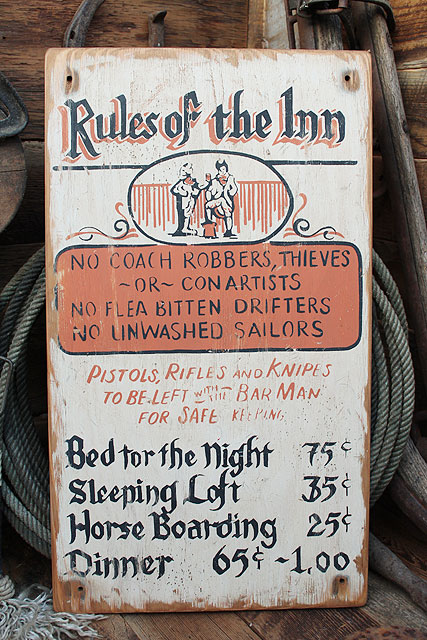 Rules of the Inn
NO COACH ROBBERS, THIEVES
~OR~ CON ARTISTS
NO FLEA BITTEN DRIFTERS
NO UNWASHED SAILORS
PISTOLS, RIFLES AND KNIPES
TO BE LEFT WITH THE BAR MAN
FOR SAFE KEEPING
Bed for the Night 75¢
Sleeping Loft 35¢
Horse Boarding 25¢
Dinner 65¢ ~1.00